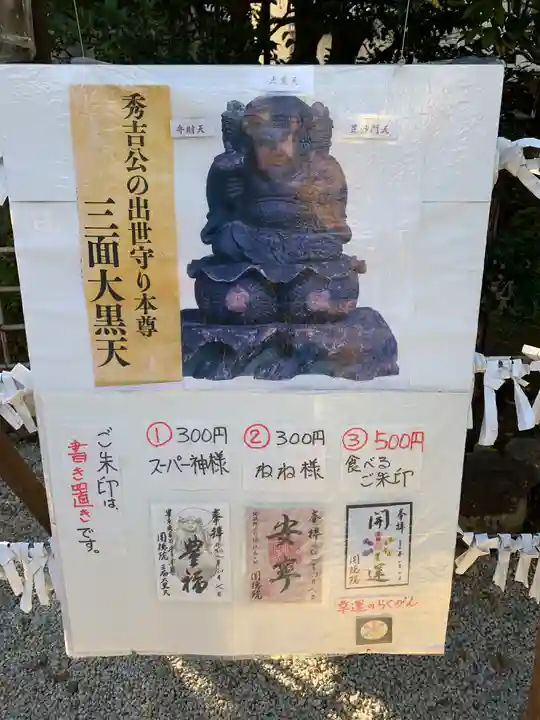 秀吉公の出世守り本尊
三面大黒天
大黒天
弁財天
毘沙門天
ご朱印は、
書き置きです。
① 300円
スーパー神様
② 300円
ねね様
③ 500円
食べる
ご朱印
奉拝
豊福
圓徳院
三面大黒天
奉拝
安寧
圓徳院
奉拝
開運
圓徳院
幸運のらくがん